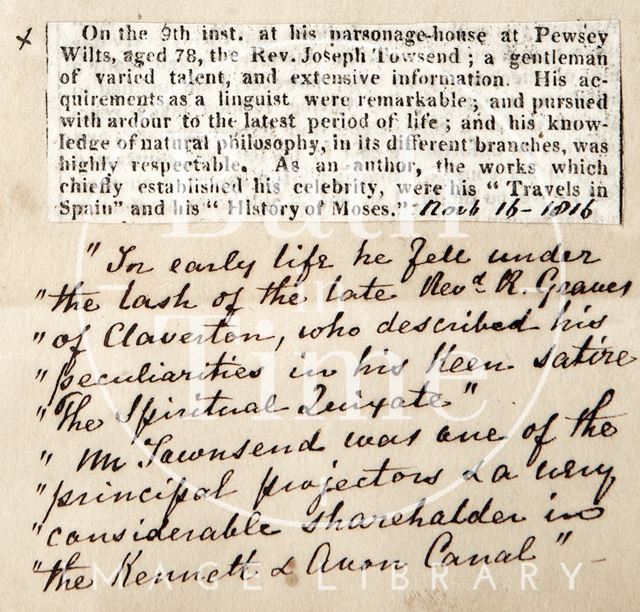 x
On the 9th inst. at his parsonage-house at Pewsey
Wilts, aged 78, the Rev. Joseph Towsend; a gentleman
of varied talent, and extensive information. His ac-
quirements as a linguist were remarkable; and pursued
with ardour to the latest period of life; and his know-
ledge of natural philosophy, in its different branches, was
highly respectable. As an author, the works which
chiefly established his celebrity, were his "Travels in
Spain" and his "History of Moses." 16-1816
"In early life he fell under
"the lash of the late Revd. R. Graves
"of Claverton, who described his
"peculiarities in his keen satire
"The Spiritual Quixote"
"Mr Townsend was one of the
"principal projectors & a very
"considerable shareholder in
"the Kennett & Avon Canal"
Bath
in
Time
IMAGE LIBRARY